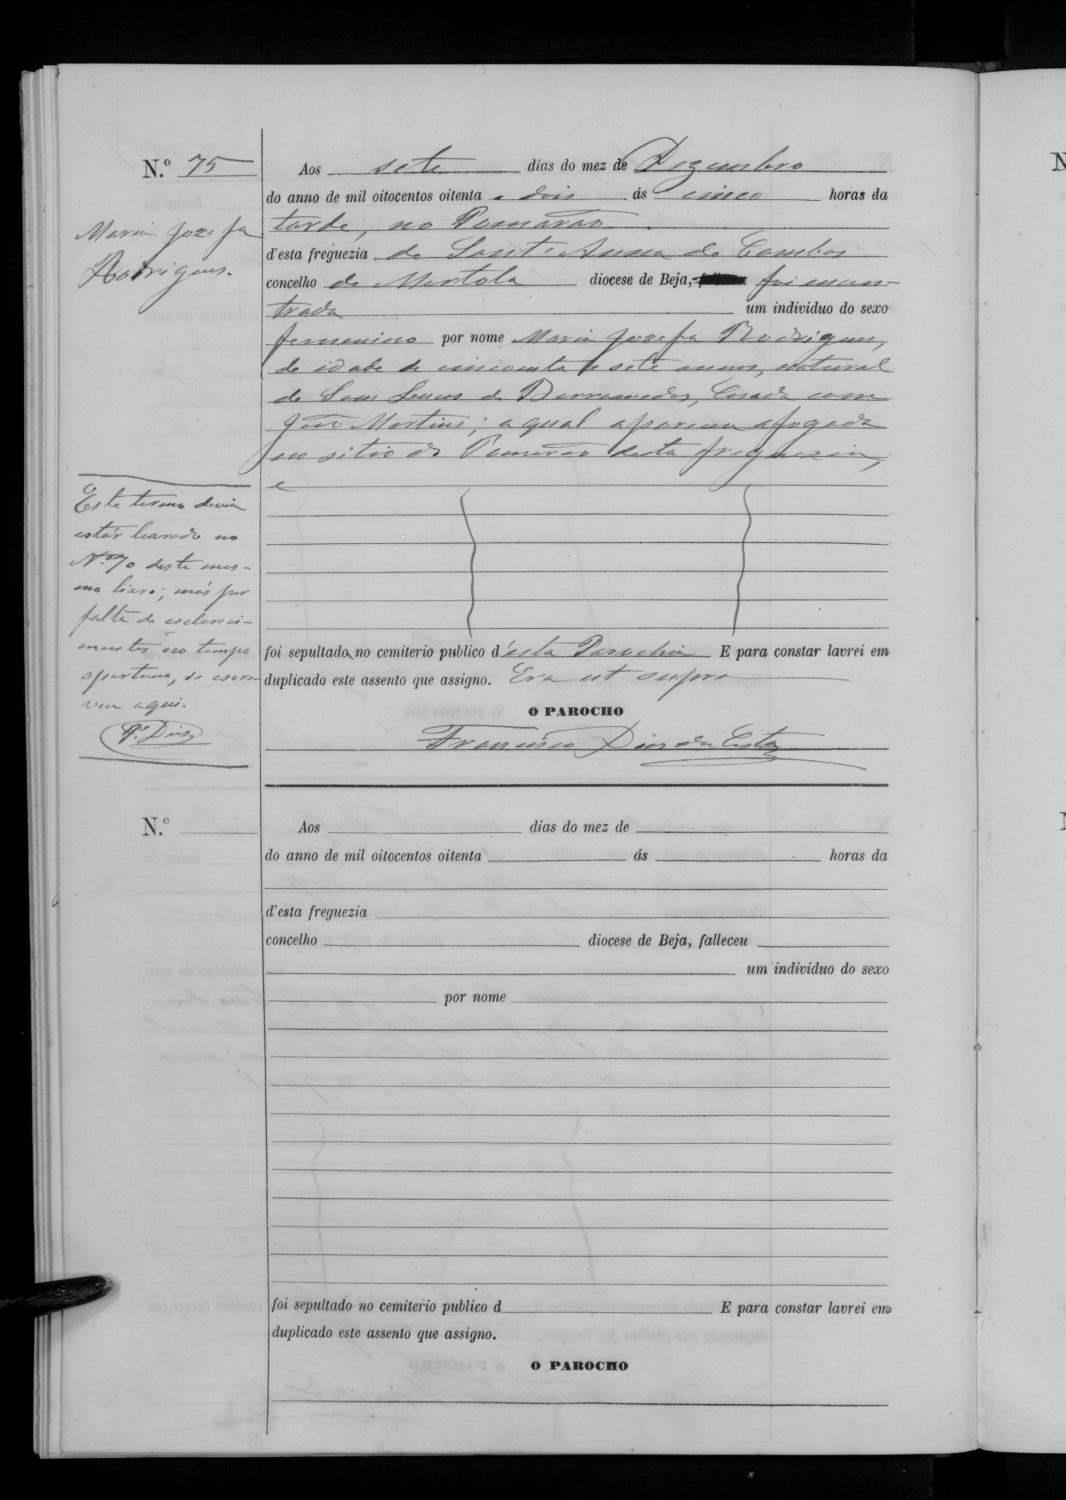 N.º 75
Aos sete dias do mez de Dezembro
do anno de mil oitocentos oitenta e dois ás cinco horas da
Maria Jozefa
Rodrigues.
tarde, no Pomarão
d'esta freguezia de Sant'Anna de Cambas
concelho de Mertola diocese de Beja, foi encon-
trada um individuo do sexo
femenino por nome Maria Jozefa Rodrigues,
de idade de cincoenta e sete annos, natural
de Sam Lucas de Barrameda, Casada com
João Martins; a qual apareceu afogada
no sitio do Pomarão desta freguezia,
e
Este termo devia
estar lavrado no
N.º 70 deste mes-
mo livro; mas por
falta de esclareci-
mentos no tempo
oportuno, se escre-
veu aqui.
P.e Dias
foi sepultada no cemiterio publico d'esta Parochia E para constar lavrei em
duplicado este assento que assigno. Era ut supra
O PAROCHO
Francisco Dias da Costa
N.º
Aos dias do mez de
do anno de mil oitocentos oitenta ás horas da
d'esta freguezia
concelho diocese de Beja, falleceu
um individuo do sexo
por nome
foi sepultado no cemiterio publico d E para constar lavrei em
duplicado este assento que assigno.
O PAROCHO